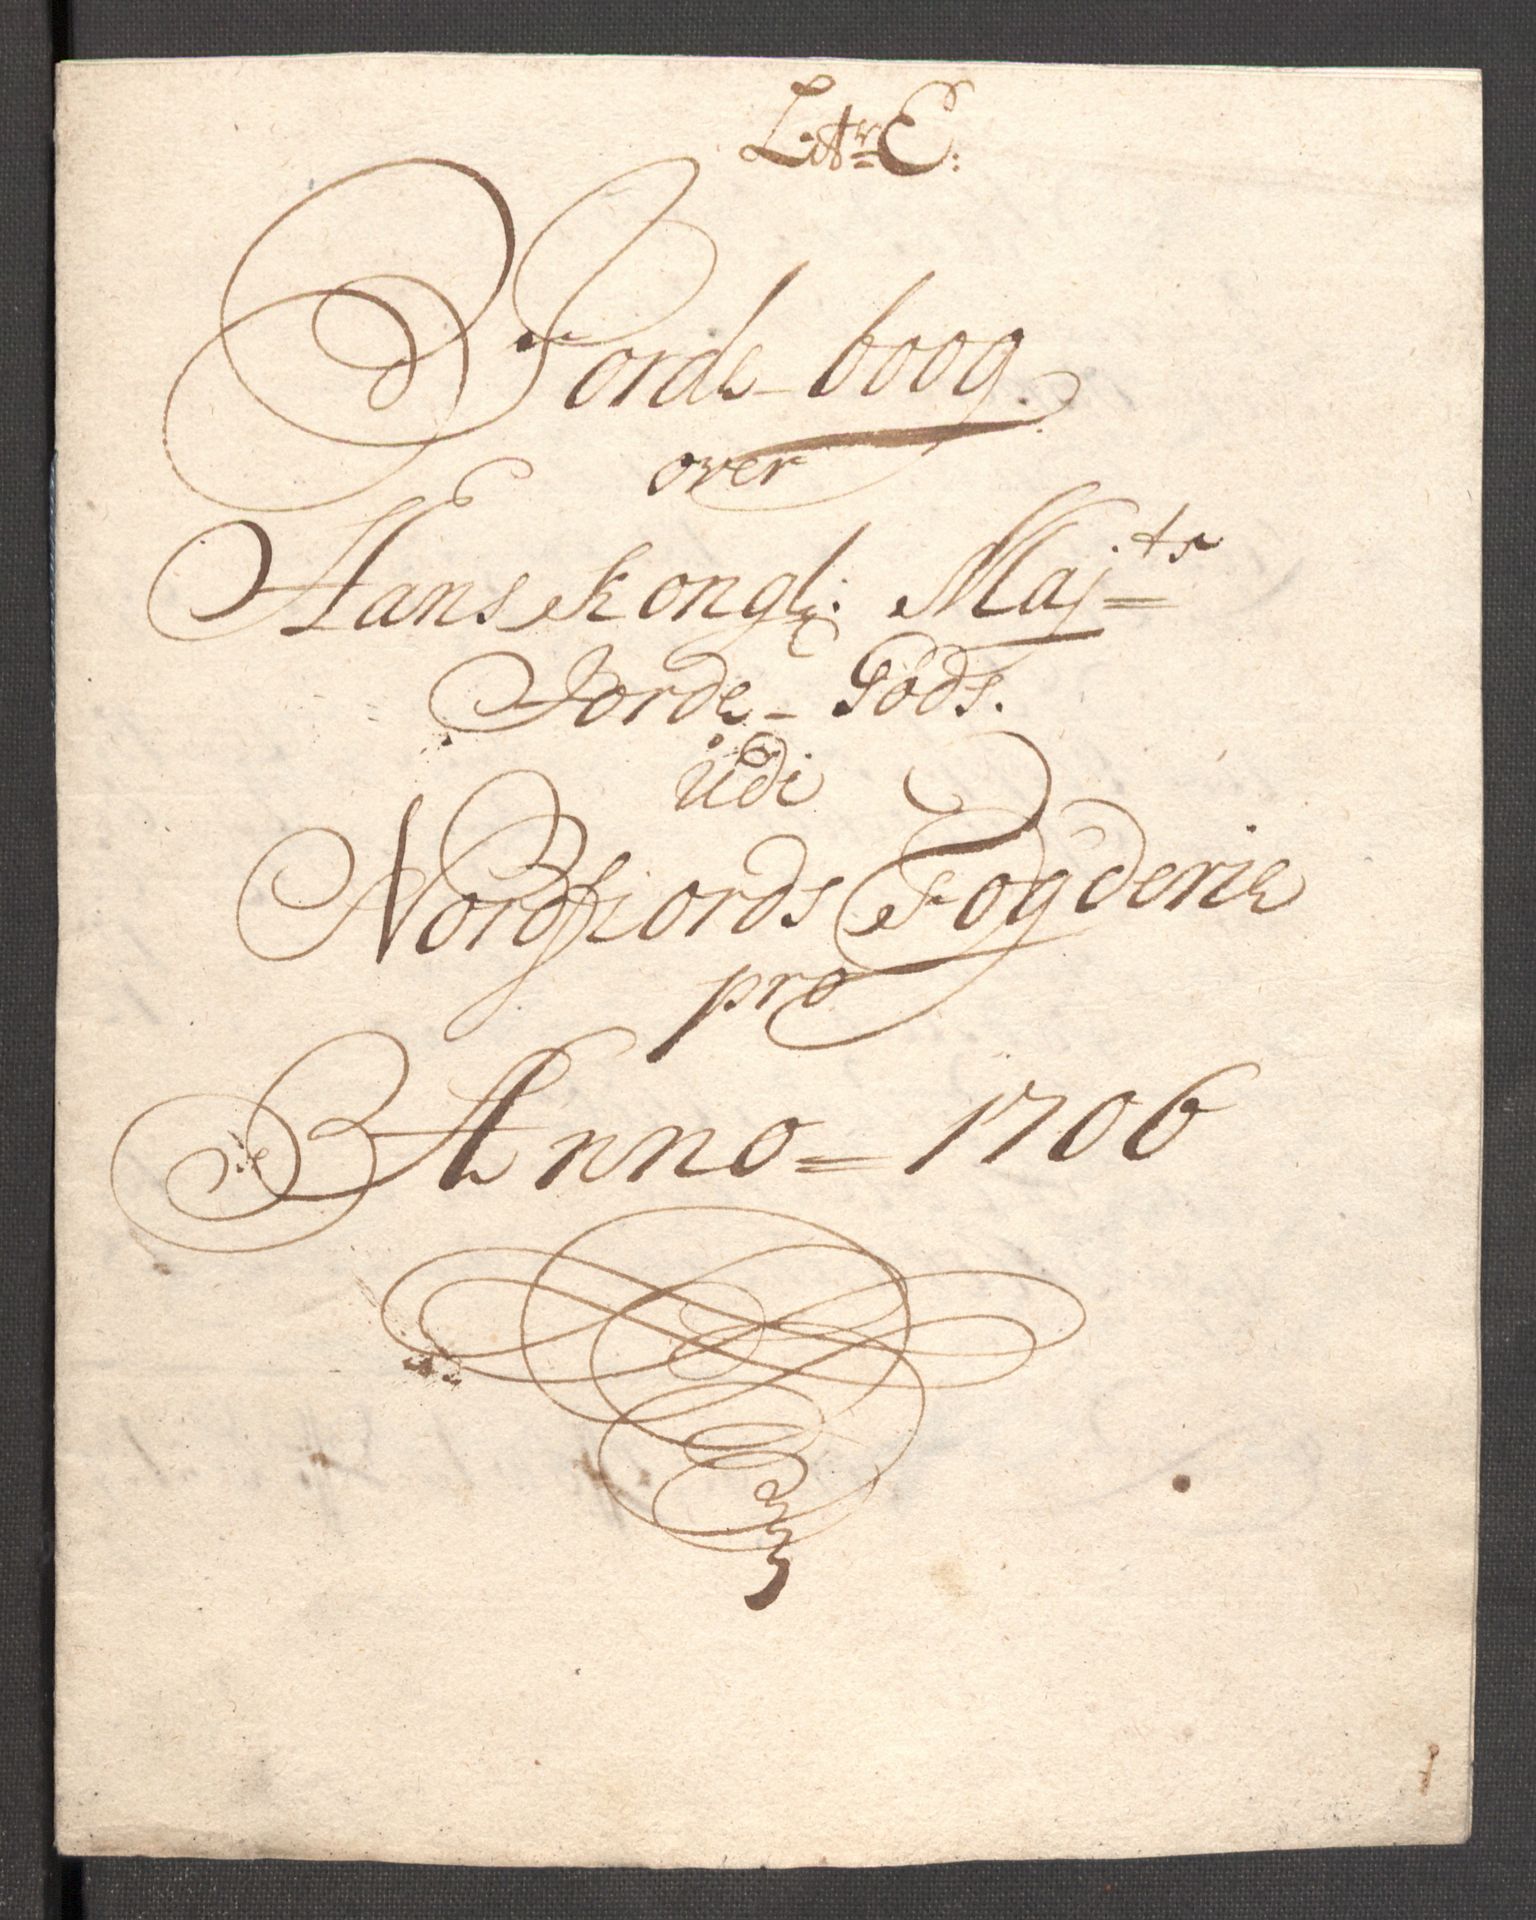 Litr: E:
Jorde-boog
over
Hans Kongl: Majts
Jorde-Gods.
udi
Nordfiords Fogderie
pro
Anno = 1706